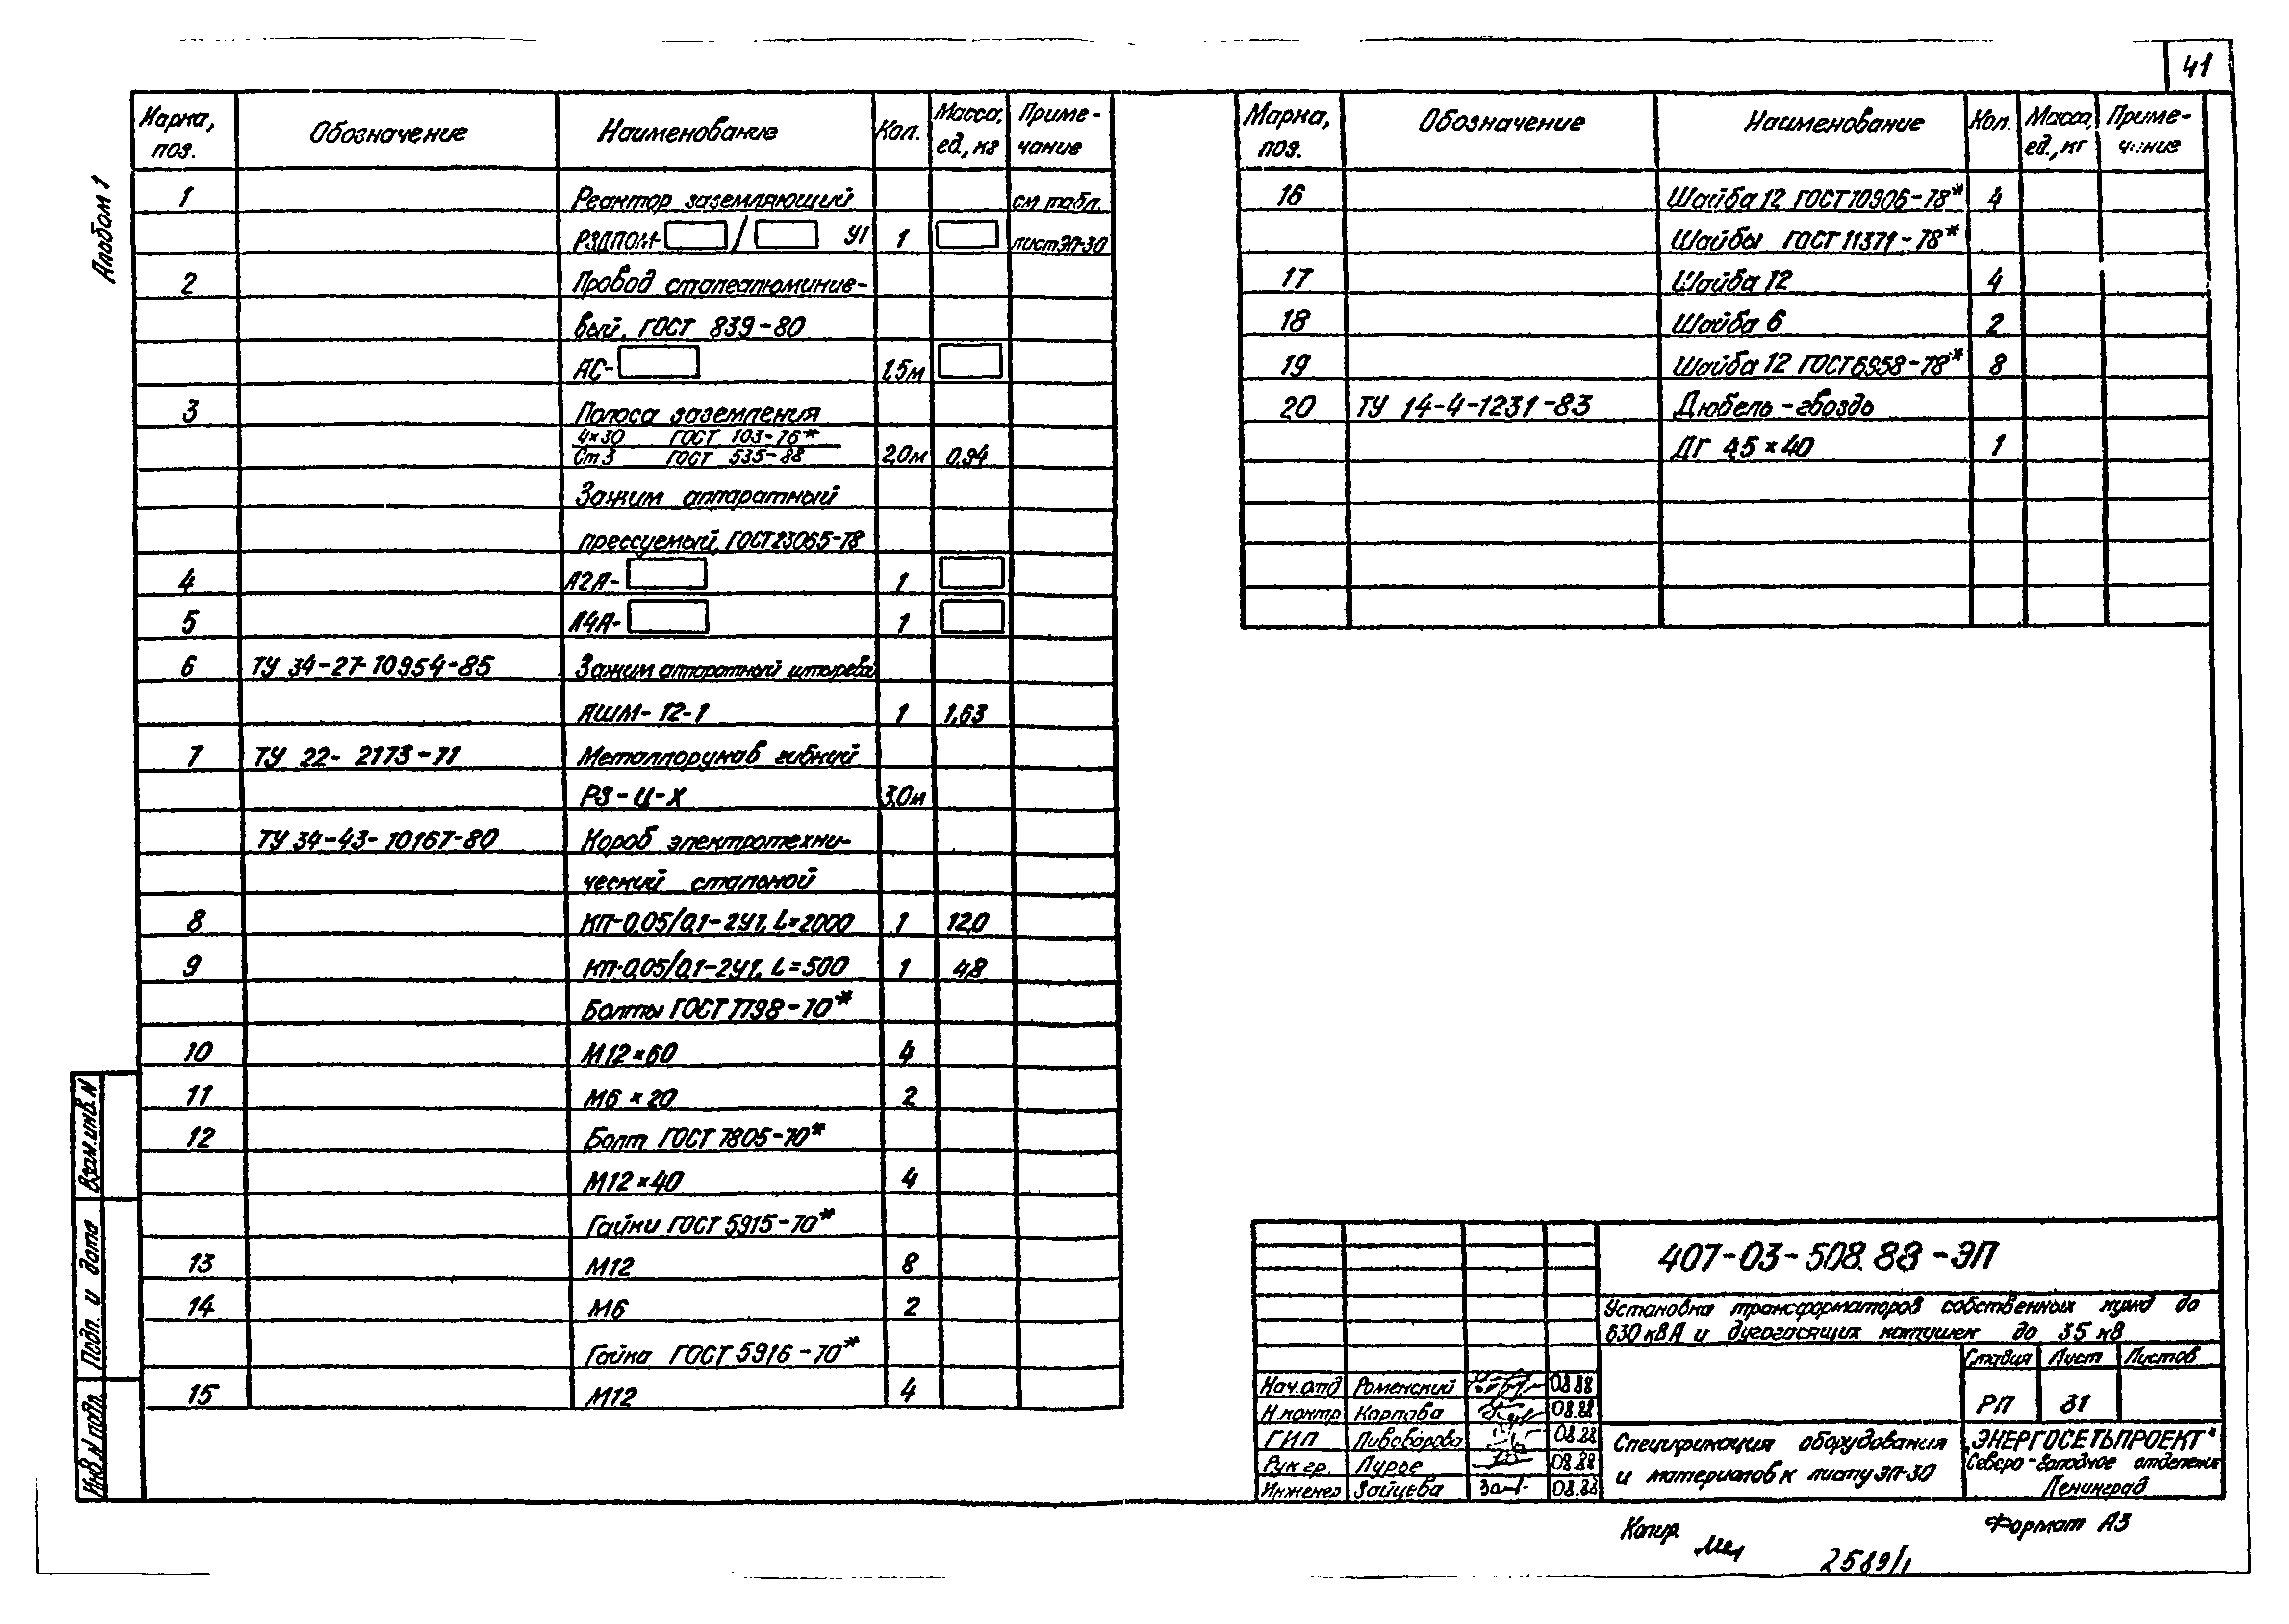 41
Альбом 1
Марка, поз. Обозначение Наименование Кол. Масса, ед., кг Приме-чание
1 Реактор заземляющий см. табл.
РЗДПОМ- / У1 1 лист ЭП-30
2 Провод сталеалюминие-
вый, ГОСТ 839-80
АС- 1,5м
3 Полоса заземления
4×30 ГОСТ 103-76*
Ст3 ГОСТ 535-88 2,0м 0,94
Зажим аппаратный
прессуемый, ГОСТ 23065-78
4 А2А- 1
5 А4А- 1
6 ТУ 34-27-10954-85 Зажим аппаратный штырева
АШМ-12-1 1 1,63
7 ТУ 22-2173-71 Металлорукав гибкий
РЗ-Ц-Х 3,0м
ТУ 34-43-10167-80 Короб электротехни-
ческий стальной
8 КП-0,05/0,1-2У1, L=2000 1 12,0
9 КП-0,05/0,1-2У1, L=500 1 4,8
Болты ГОСТ 7798-70*
10 М12×60 4
11 М6×20 2
12 Болт ГОСТ 7805-70*
М12×40 4
Гайки ГОСТ 5915-70*
13 М12 8
14 М6 2
Гайка ГОСТ 5916-70*
15 М12 4
Марка, поз. Обозначение Наименование Кол. Масса, ед., кг Приме-чание
16 Шайба 12 ГОСТ 10906-78* 4
Шайбы ГОСТ 11371-78*
17 Шайба 12 4
18 Шайба 6 2
19 Шайба 12 ГОСТ 6958-78* 8
20 ТУ 14-4-1231-83 Дюбель-гвоздь
ДГ 4,5×40 1
Взам. инв. N
Подп. и дата
Инв. N подл.
407-03-508.88-ЭП
Установка трансформаторов собственных нужд до
630 кВА и дугогасящих катушек до 35 кВ
Стадия Лист Листов
РП 31
Нач. отд Роменский 08.88
Н. контр Карпова 08.88
ГИП Пивоварова 08.88
Рук гр. Лурье 08.88
Инженер Зайцева 08.88
Спецификация оборудования
и материалов к листу ЭП-30
"ЭНЕРГОСЕТЬПРОЕКТ"
Северо-Западное отделение
Ленинград
Копир. Формат А3
2589/1